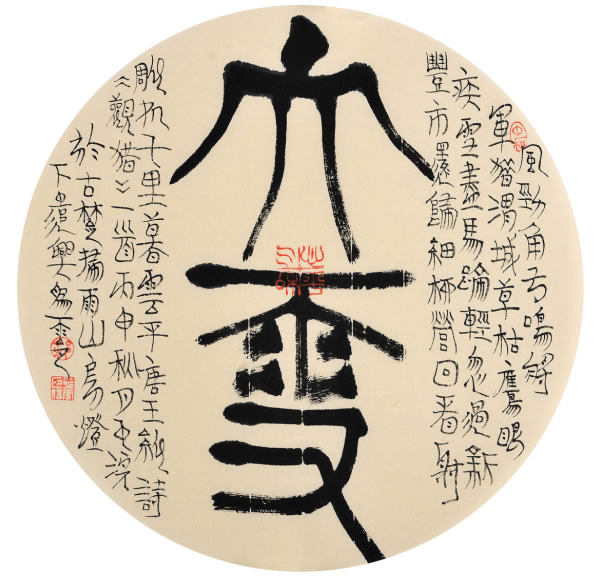 風勁角弓鳴將
軍猎渭城草枯鷹眼
疾雪盡馬蹄輕忽過新
豐市還歸細柳營回看射
大
雕処千里暮雲平唐王維詩
《觀猎》一首丙申秋月
於古楚雨山房燈
下